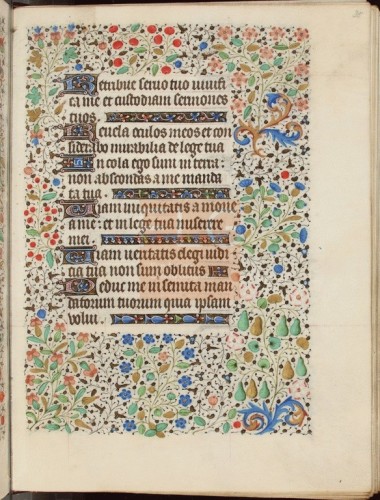 Retribue seruo tuo uiuifi
ca me et custodiam sermones
tuos.
Reuela oculos meos et con
siderabo mirabilia de lege tua
Incola ego sum in terra:
non abscondas a me manda
ta tua.
Uiam iniquitatis amoue
a me: et in lege tua miserere
mei.
Uiam ueritatis elegi iudi
cia tua non sum oblitus
Deduc me in semita man
datorum tuorum quia ipsam
uolui.